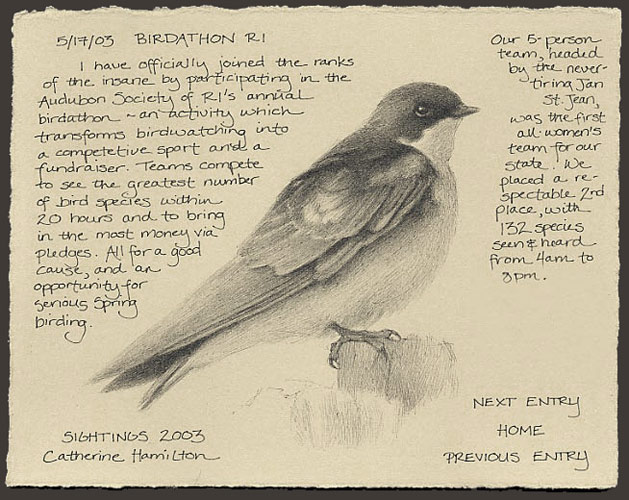 5/17/03 BIRDATHON RI
I have officially joined the ranks
of the insane by participating in the
Audubon Society of RI's annual
birdathon - an activity which
transforms birdwatching into
a competetive sport and a
fundraiser. Teams compete
to see the greatest number
of bird species within
20 hours and to bring
in the most money via
pledges. All for a good
cause, and an
opportunity for
serious Spring
birding.
Our 5-person
team, headed
by the never-
tiring Jan
St. Jean,
was the first
all-women's
team for our
state. We
placed a re-
spectable 2nd
place, with
132 species
seen & heard
from 4am to
8pm.
SIGHTINGS 2003
Catherine Hamilton
NEXT ENTRY
HOME
PREVIOUS ENTRY